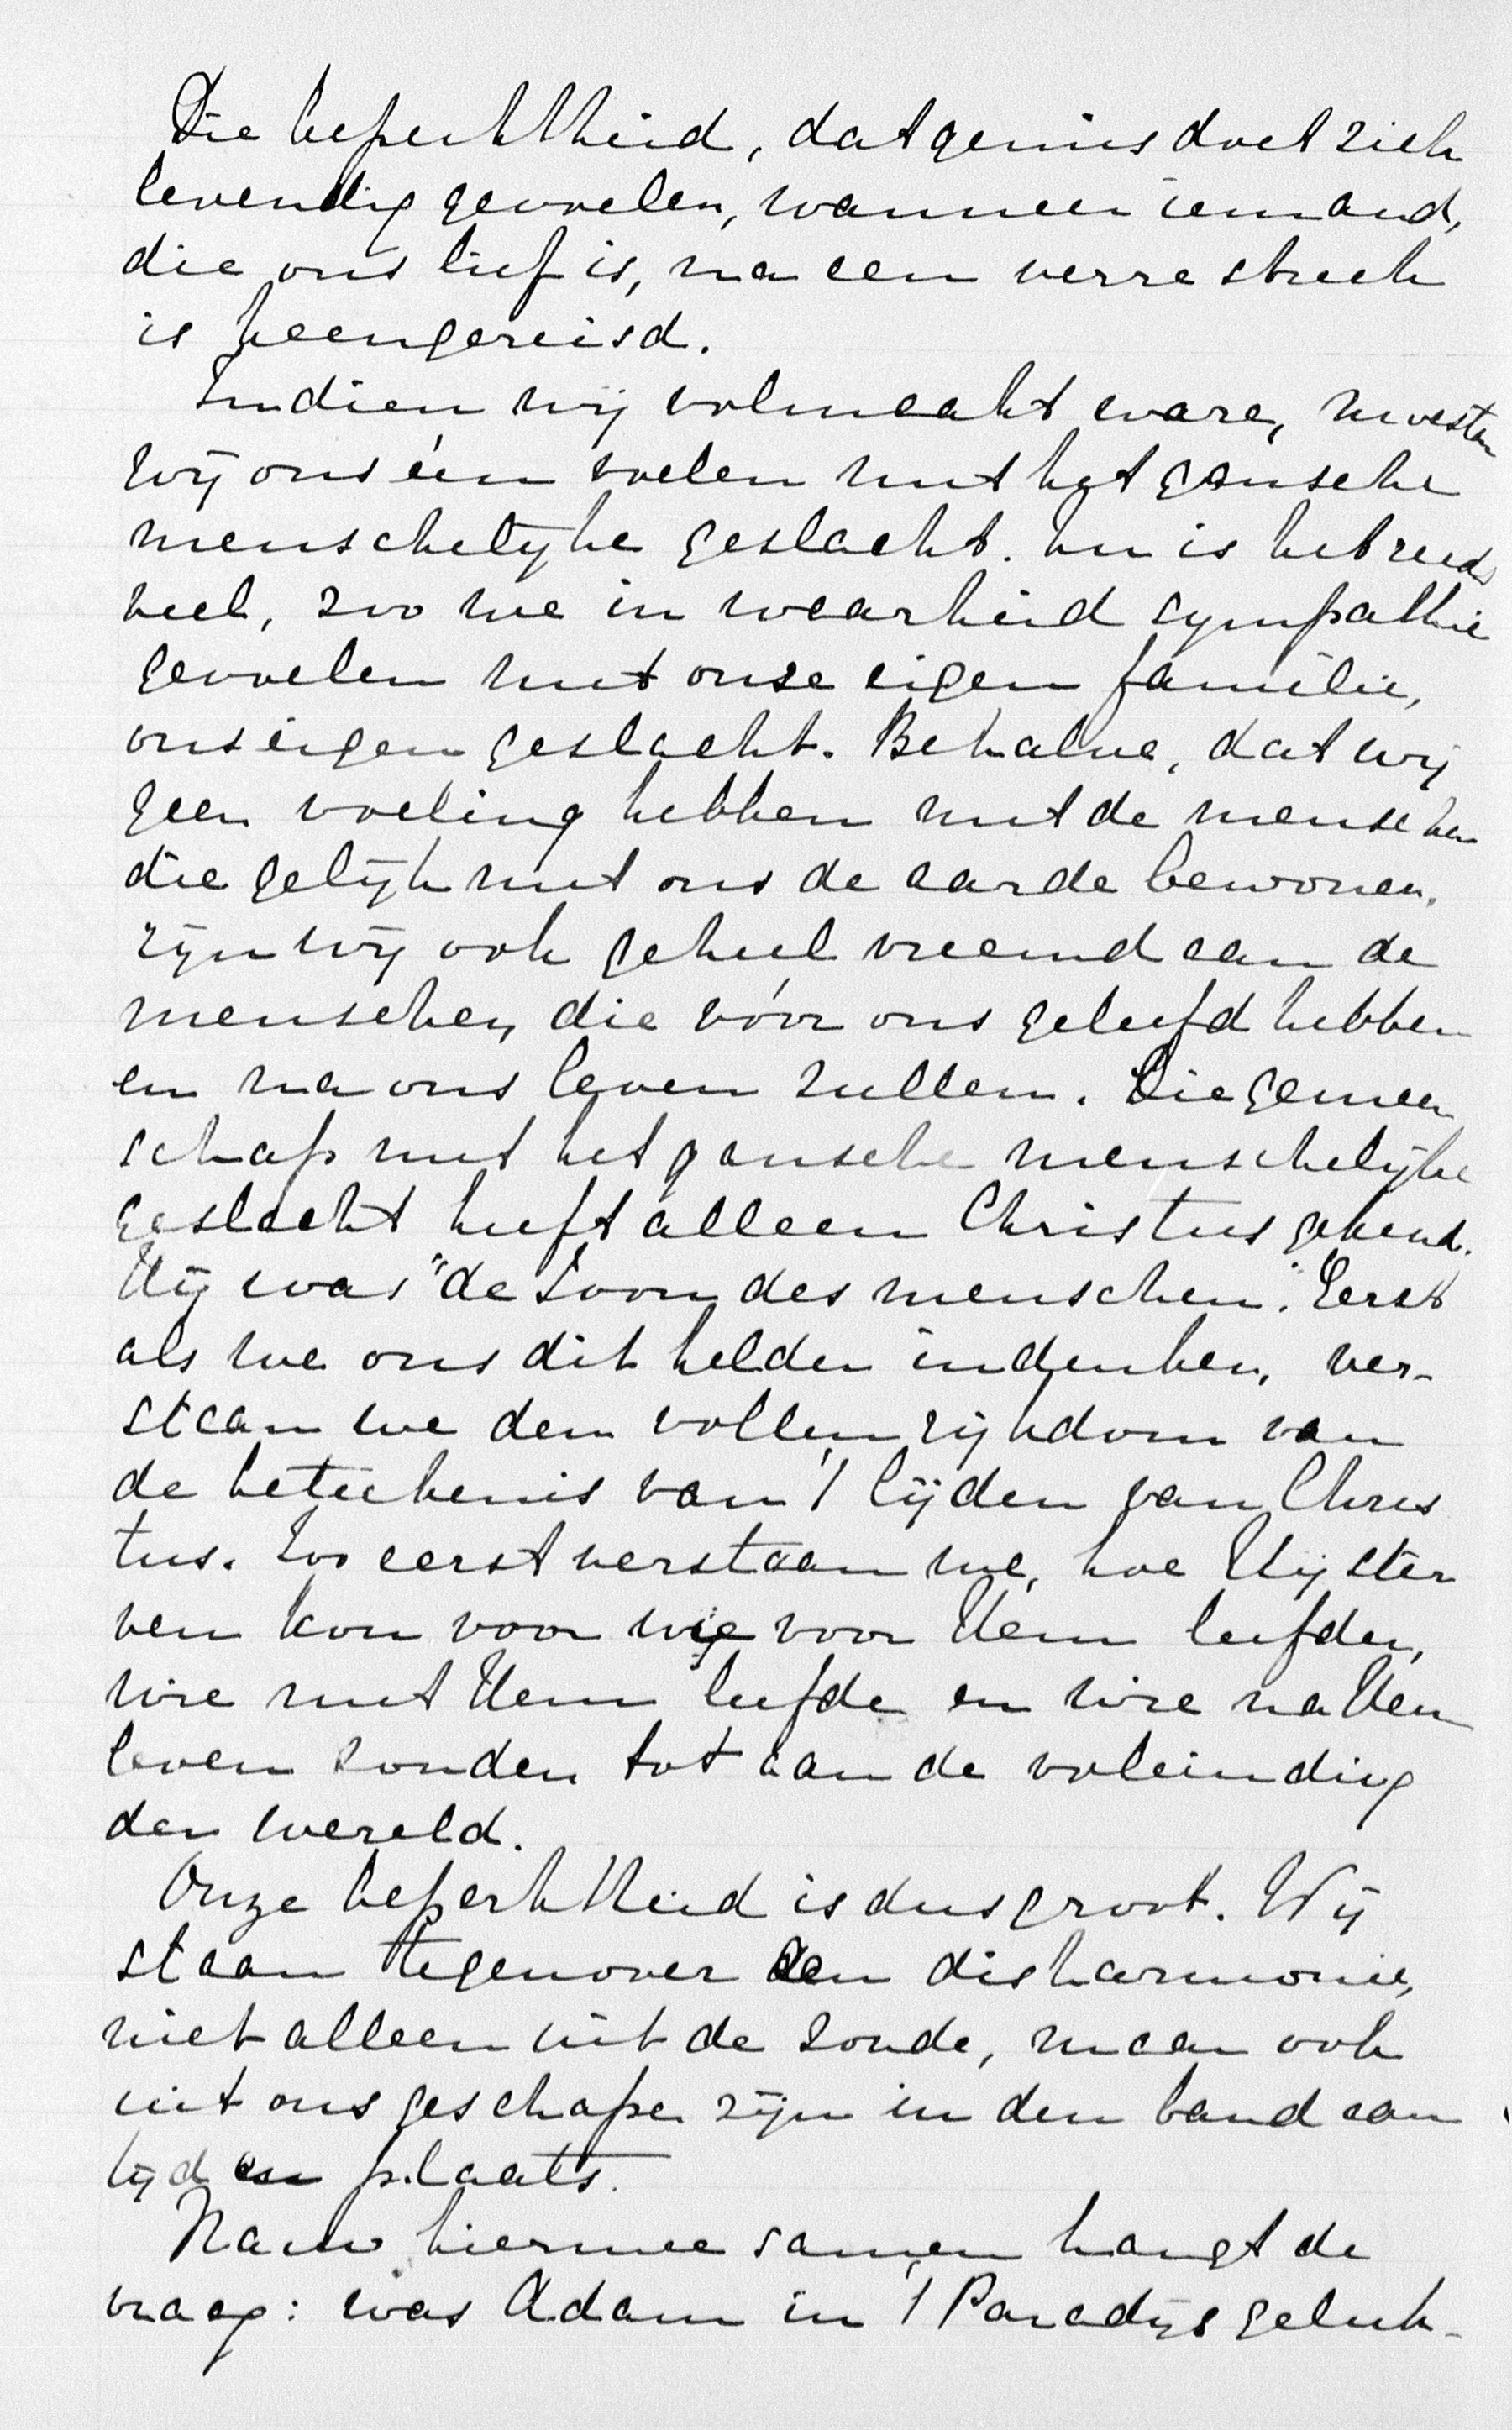 Die beperktheid, dat gemis doet zich
levendig gevoelen, wanneer iemand,
die ons lief is, na een verre streek
is heengereisd.
Indien wij volmaakt ware, moesten
wij ons één voelen met het gansche
menschelijke geslacht. Nu is het reeds
veel, zoo we in waarheid sympathie
gevoelen met onze eigen familie,
ons eigen geslacht. Behalve, dat wij
geen voeling hebben met de menschen
die gelijk met ons de aarde bewonen,
zijn wij ook geheel vreemd aan de
menschen, die vóór ons geleefd hebben
en na ons leven zullen. Die gemeen
schap met het gansche menschelijke
geslacht heeft alleen Christus gekend.
Hij was "de Zoon des menschen." Eerst
als we ons dit helder indenken, ver-
staan we den vollen rijkdom van
de beteekenis van 't lijden van Chris
tus. Zoo eerst verstaan we, hoe Hij ster
ven kon voor wie voor Hem leefden,
wie met Hem leefde en wie na Hem
leven zouden tot aan de voleinding
der wereld.
Onze beperktheid is dus groot. Wij
staan tegenover een disharmonie,
niet alleen uit de zonde, maar ook
uit ons geschapen zijn in den band aan
tijd en plaats.
Nauw hiermee samen hangt de
vraag: was Adam in 't Paradijs geluk-